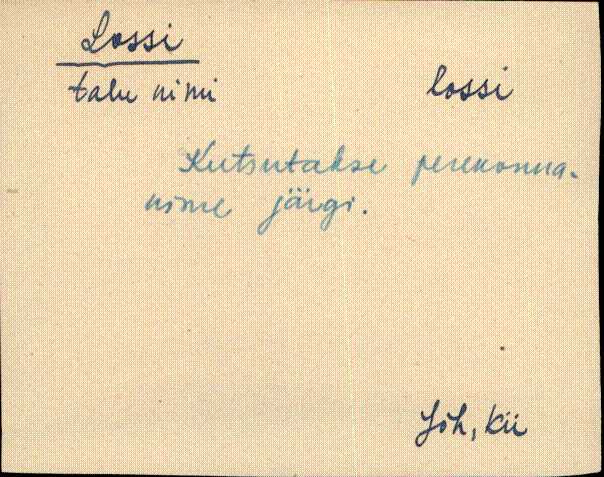 Lossi
talu nimi lossi
Kutsutakse perekonna-
nime järgi.
Jõh, Kii